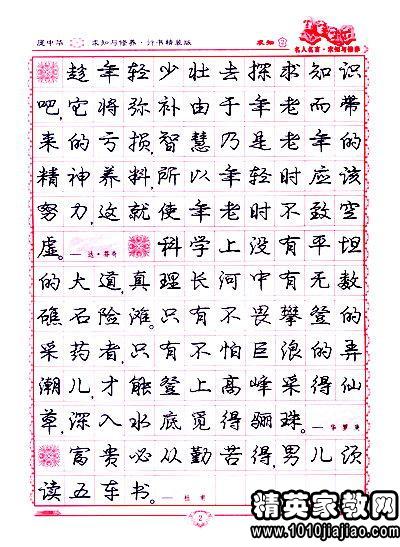 庞中华 求知与修养·行书精装版 求知
名人名言·求知与修养
趁年轻少壮去探求知识
吧,它将弥补由于年老而带
来的亏损,智慧乃是老年的
精神养料,所以年轻时应该
努力,这就使年老时不致空
虚。—达·芬奇 科学上没有平坦
的大道,真理长河中有无数
礁石险滩。只有不畏攀登的
采药者,只有不怕巨浪的弄
潮儿,才能登上高峰采得仙
草,深入水底觅得骊珠。—华罗庚
富贵必从勤苦得,男儿须
读五车书。—杜甫
2
精英家教网
www.1010jiajiao.com